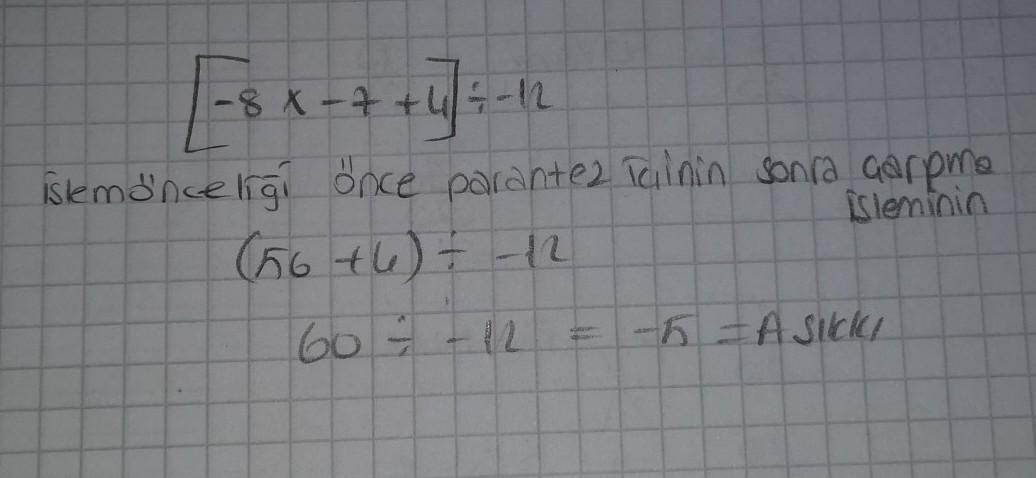 [-8 x -7 +4] ÷ -12
işlemönceliği önce parantez içinin sonra çarpma
işleminin
(56 +4) ÷ -12
60 ÷ -12 = -5 = A şıkkı